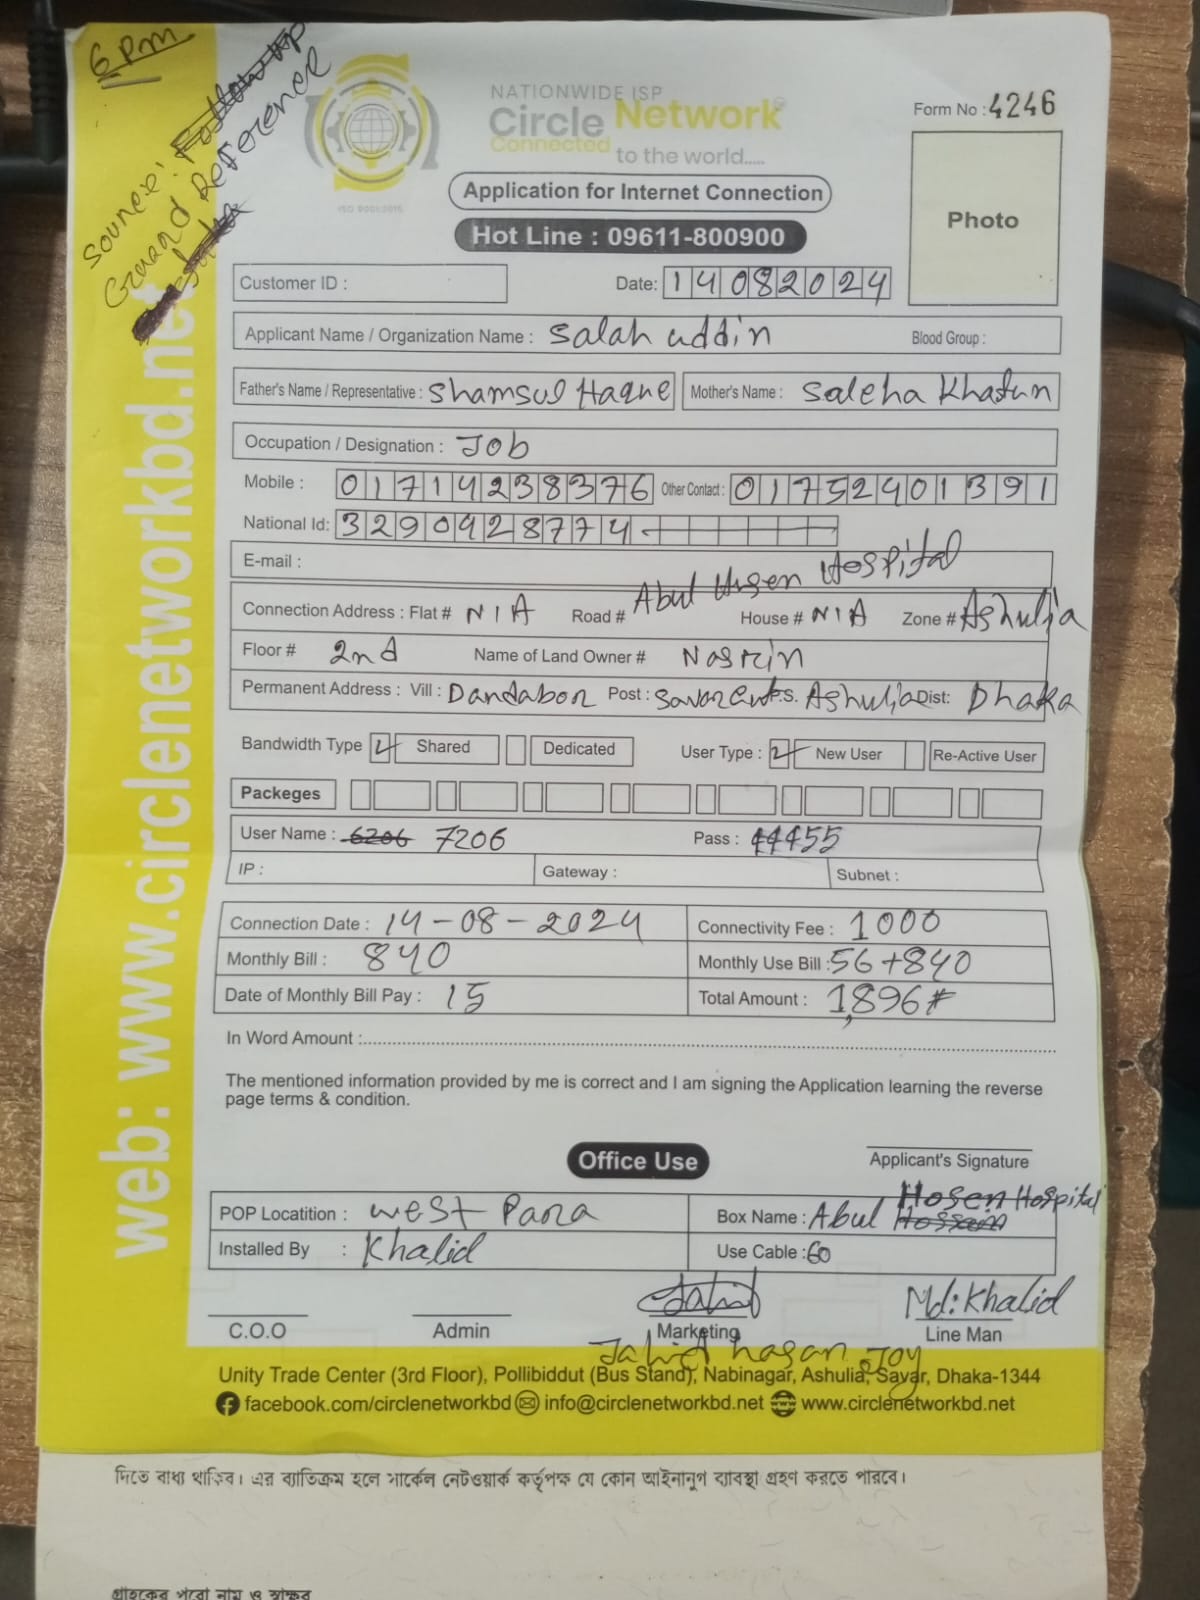 6 PM
Source: Follow Up
Guard Reference
NATIONWIDE ISP
Circle Network
Connected to the world.....
ISO 9001:2015
Form No : 4246
Photo
Application for Internet Connection
Hot Line : 09611-800900
Customer ID :
Date: 14082024
Applicant Name / Organization Name : Salah uddin Blood Group :
Father's Name / Representative : Shamsul Haque Mother's Name : Saleha Khatun
Occupation / Designation : Job
Mobile : 01714238376 Other Contact : 01752401391
National Id: 3290428774
E-mail :
Connection Address : Flat # N/A Road # Abul Hosen Hospital House # N/A Zone # Ashulia
Floor # 2nd Name of Land Owner # Nasrin
Permanent Address : Vill : Dandabor Post : Savar Cant P.S. Ashulia Dist: Dhaka
Bandwidth Type Shared Dedicated User Type : New User Re-Active User
Packeges
User Name : 6206 7206 Pass : 44455
IP : Gateway : Subnet :
Connection Date : 14-08-2024 Connectivity Fee : 1000
Monthly Bill : 840 Monthly Use Bill : 56+840
Date of Monthly Bill Pay : 15 Total Amount : 1,896#
In Word Amount :
The mentioned information provided by me is correct and I am signing the Application learning the reverse
page terms & condition.
Applicant's Signature
Office Use
POP Locatition : west Para Box Name : Abul Hossam Hosen Hospital
Installed By : Khalid Use Cable : 60
Jahid Md: Khalid
C.O.O Admin Marketing Line Man
Jahid hasan Joy
Unity Trade Center (3rd Floor), Pollibiddut (Bus Stand), Nabinagar, Ashulia, Savar, Dhaka-1344
facebook.com/circlenetworkbd info@circlenetworkbd.net www.circlenetworkbd.net
web: www.circlenetworkbd.net
দিতে বাধ্য থাকিব। এর ব্যতিক্রম হলে সার্কেল নেটওয়ার্ক কর্তৃপক্ষ যে কোন আইনানুগ ব্যবস্থা গ্রহণ করতে পারবে।
গ্রাহকের পুরো নাম ও স্বাক্ষর